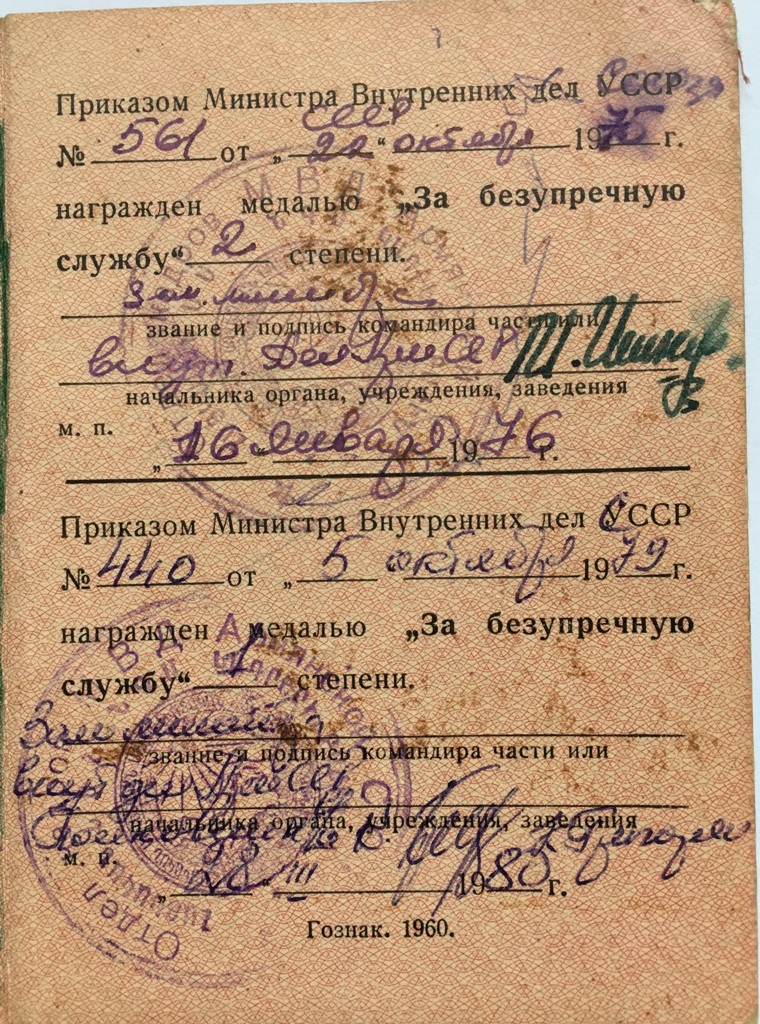 Приказом Министра Внутренних дел УССР
СССР
№ 561 от „ 22 “ октября 1975 г.
награжден медалью „За безупречную
службу“ 2 степени.
Зам.
звание и подпись командира части или
внут. дел
начальника органа, учреждения, заведения
м. п.
„ 16 “ января 1976 г.
Приказом Министра Внутренних дел СССР
№ 440 от „ 5 октября 1979 г.
награжден медалью „За безупречную
службу“ 1 степени.
Зам
звание и подпись командира части или
внут дел
начальника органа, учреждения, заведения
Полковник
м. п.
„ 28 “ III 1980 г.
МВД
Отдел
Гознак. 1960.